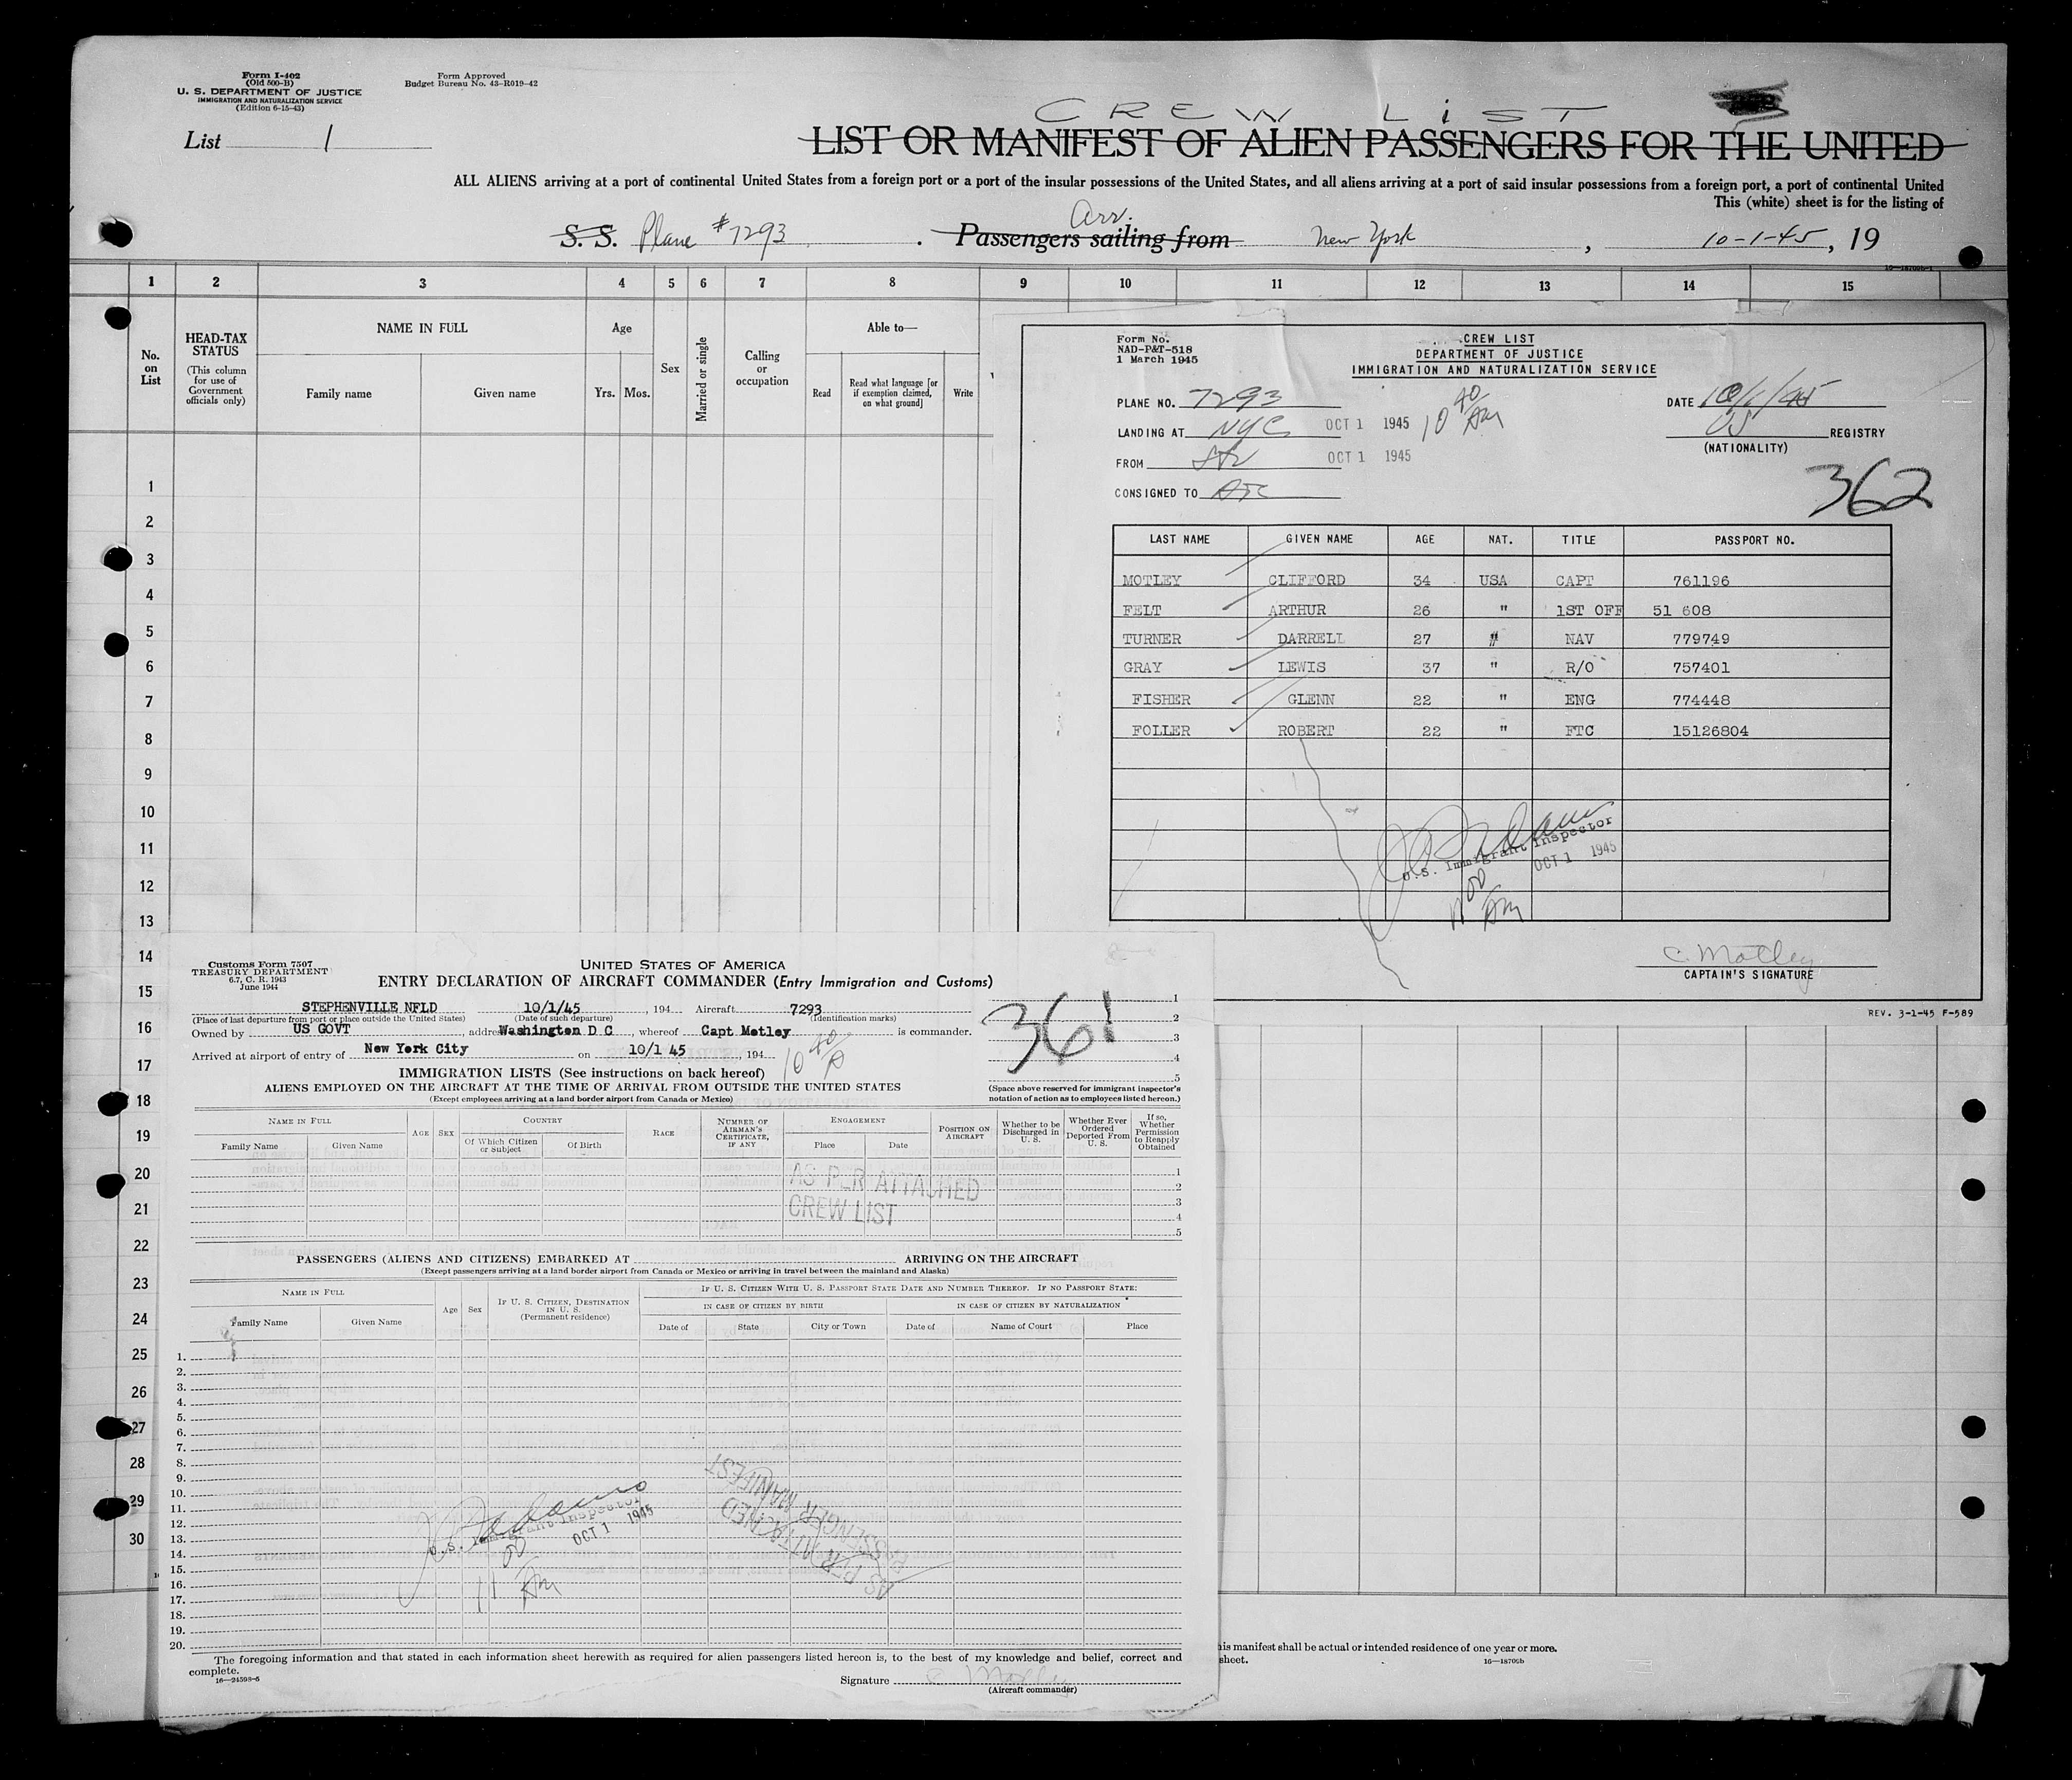 Form I-402
(Old 500-B)
U. S. DEPARTMENT OF JUSTICE
IMMIGRATION AND NATURALIZATION SERVICE
(Edition 6-15-43)
Form Approved
Budget Bureau No. 43-R019-42
List 1
CREW LIST
LIST OR MANIFEST OF ALIEN PASSENGERS FOR THE UNITED
ALL ALIENS arriving at a port of continental United States from a foreign port or a port of the insular possessions of the United States, and all aliens arriving at a port of said insular possessions from a foreign port, a port of continental United
This (white) sheet is for the listing of
Arr.
S. S. Plane #7293 . Passengers sailing from New York , 10-1-45, 19
16—18709b-1
1 2 3 4 5 6 7 8 9 10 11 12 13 14 15
No. on List
HEAD-TAX STATUS
(This column for use of Government officials only)
NAME IN FULL
Family name Given name
Age
Yrs. Mos.
Sex
Married or single
Calling or occupation
Able to—
Read
Read what language [or if exemption claimed, on what ground]
Write
1
2
3
4
5
6
7
8
9
10
11
12
13
14
15
16
17
18
19
20
21
22
23
24
25
26
27
28
29
30
Form No.
NAD-P&T-518
1 March 1945
CREW LIST
DEPARTMENT OF JUSTICE
IMMIGRATION AND NATURALIZATION SERVICE
PLANE NO. 7293
DATE 10/1/45
LANDING AT NYC OCT 1 1945 10 40 AM
US REGISTRY
(NATIONALITY)
FROM OCT 1 1945
362
CONSIGNED TO ATC
LAST NAME GIVEN NAME AGE NAT. TITLE PASSPORT NO.
MOTLEY CLIFFORD 34 USA CAPT 761196
FELT ARTHUR 26 " 1ST OFF 51 608
TURNER DARRELL 27 " NAV 779749
GRAY LEWIS 37 " R/O 757401
FISHER GLENN 22 " ENG 774448
FOLLER ROBERT 22 " FTC 15126804
U.S. Immigrant Inspector
OCT 1 1945
11 00 AM
C. Motley
CAPTAIN'S SIGNATURE
REV. 3-1-45 F-589
Customs Form 7507
TREASURY DEPARTMENT
6.7, C. R. 1943
June 1944
UNITED STATES OF AMERICA
ENTRY DECLARATION OF AIRCRAFT COMMANDER (Entry Immigration and Customs)
STEPHENVILLE NFLD 10/1/45, 194 Aircraft 7293
(Place of last departure from port or place outside the United States) (Date of such departure) (Identification marks)
Owned by US GOVT, address Washington D C, whereof Capt Motley is commander.
Arrived at airport of entry of New York City on 10/1 45, 194
10 40 A
361
1
2
3
4
5
(Space above reserved for immigrant inspector's notation of action as to employees listed hereon.)
IMMIGRATION LISTS (See instructions on back hereof)
ALIENS EMPLOYED ON THE AIRCRAFT AT THE TIME OF ARRIVAL FROM OUTSIDE THE UNITED STATES
(Except employees arriving at a land border airport from Canada or Mexico)
NAME IN FULL
Family Name Given Name
AGE SEX
COUNTRY
Of Which Citizen or Subject Of Birth
RACE
NUMBER OF AIRMAN'S CERTIFICATE, IF ANY
ENGAGEMENT
Place Date
POSITION ON AIRCRAFT
Whether to be Discharged in U. S.
Whether Ever Ordered Deported From U. S.
If so, Whether Permission to Reapply Obtained
AS PER ATTACHED
CREW LIST
1
2
3
4
5
PASSENGERS (ALIENS AND CITIZENS) EMBARKED AT ARRIVING ON THE AIRCRAFT
(Except passengers arriving at a land border airport from Canada or Mexico or arriving in travel between the mainland and Alaska)
NAME IN FULL
Family Name Given Name
Age Sex
IF U. S. CITIZEN, DESTINATION IN U. S.
(Permanent residence)
IF U. S. CITIZEN WITH U. S. PASSPORT STATE DATE AND NUMBER THEREOF. IF NO PASSPORT STATE:
IN CASE OF CITIZEN BY BIRTH IN CASE OF CITIZEN BY NATURALIZATION
Date of State City or Town Date of Name of Court Place
1.
2.
3.
4.
5.
6.
7.
8.
9.
10.
11.
12.
13.
14.
15.
16.
17.
18.
19.
20.
AS PER ATTACHED
PASSENGER MANIFEST
U.S. Immigrant Inspector
OCT 1 1945
11 00 AM
The foregoing information and that stated in each information sheet herewith as required for alien passengers listed hereon is, to the best of my knowledge and belief, correct and
complete.
16—24598-5
Signature C. Motley
(Aircraft commander)
his manifest shall be actual or intended residence of one year or more.
sheet.
16—18709b